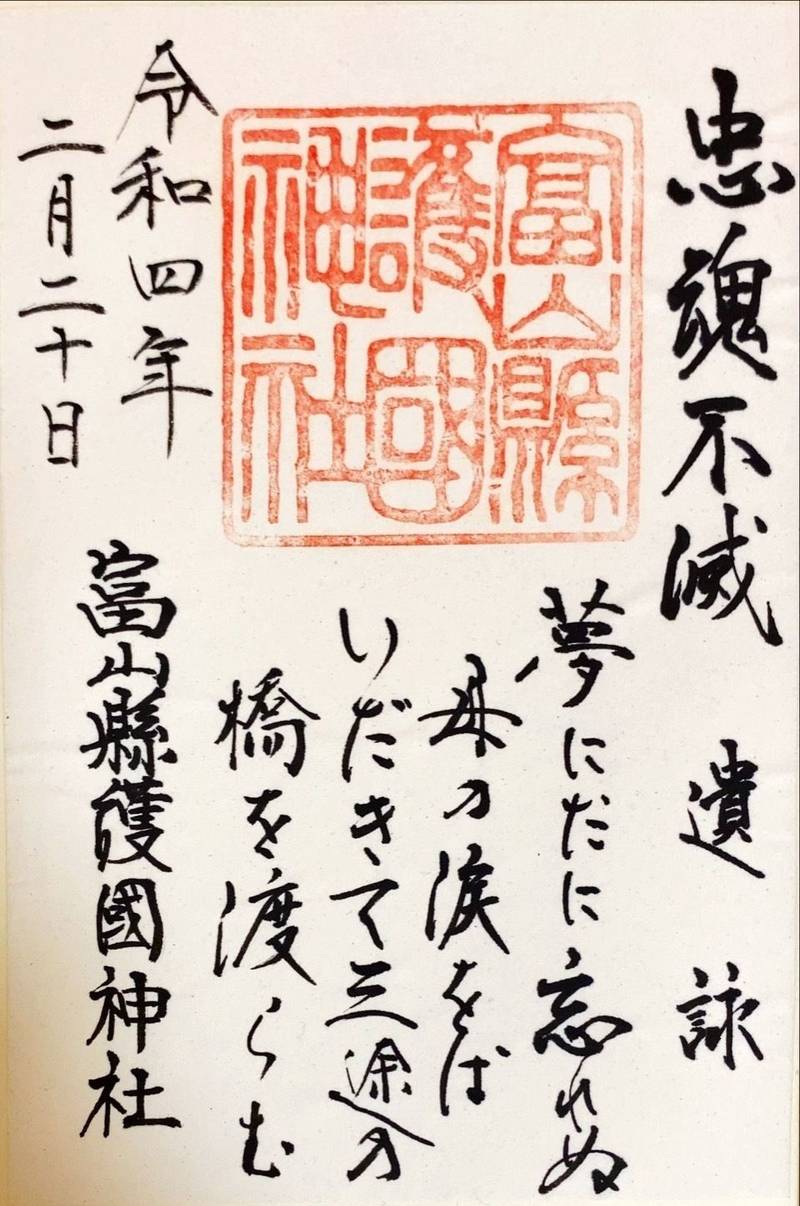 忠魂不滅 遺詠
夢にだに忘れぬ
母の涙をば
いだきて三途の
橋を渡らむ
富山縣
護國
神社
令和四年
二月二十日
富山縣護國神社